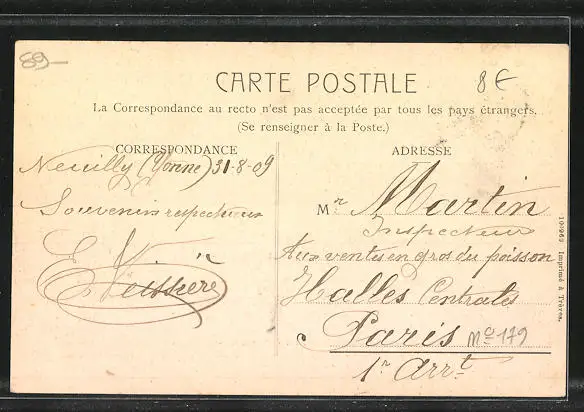 89-
CARTE POSTALE
8€
La Correspondance au recto n'est pas acceptée par tous les pays étrangers.
(Se renseigner à la Poste.)
CORRESPONDANCE
Neuilly (Yonne) 31-8-09
Souvenirs respectueux
ADRESSE
Mr Martin
Inspecteur
Aux ventes en gros du poisson
Halles Centrales
Paris Mo 179
1r Arrt
Imprimé à Trèves.